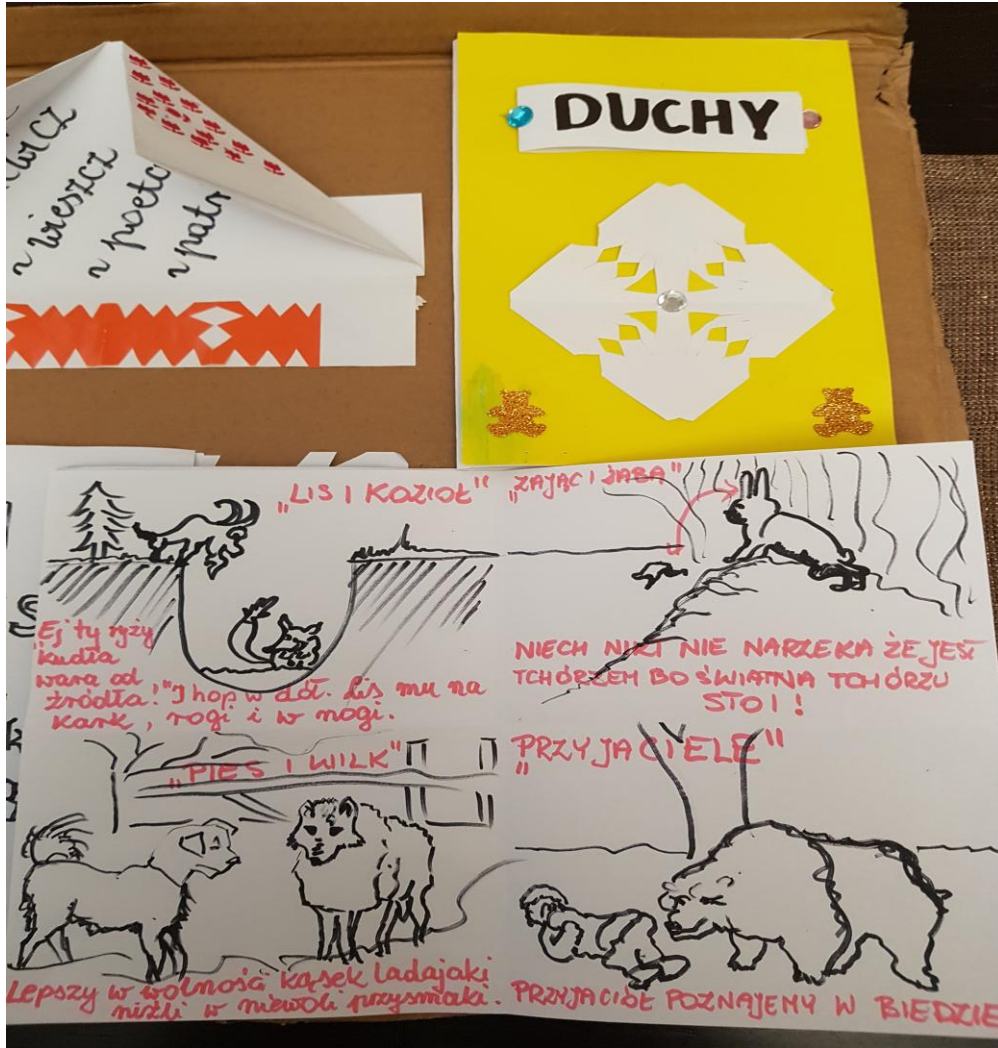 wicz
~ wieszcz
~ poeta
~ patr
DUCHY
„LIS I KOZIOŁ"
"Ej ty ryży
kudła
wara od
źródła!" I hop w dół. Lis mu na
kark, rogi i w nogi.
„ZAJĄC I ŻABA"
NIECH NIKT NIE NARZEKA ŻE JEST
TCHÓRZEM BO ŚWIAT NA TCHÓRZU
STOI!
„PIES I WILK"
Lepszy w wolności kąsek ladajaki
niźli w niewoli przysmaki.
„PRZYJACIELE"
PRZYJACIÓŁ POZNAJEMY W BIEDZIE